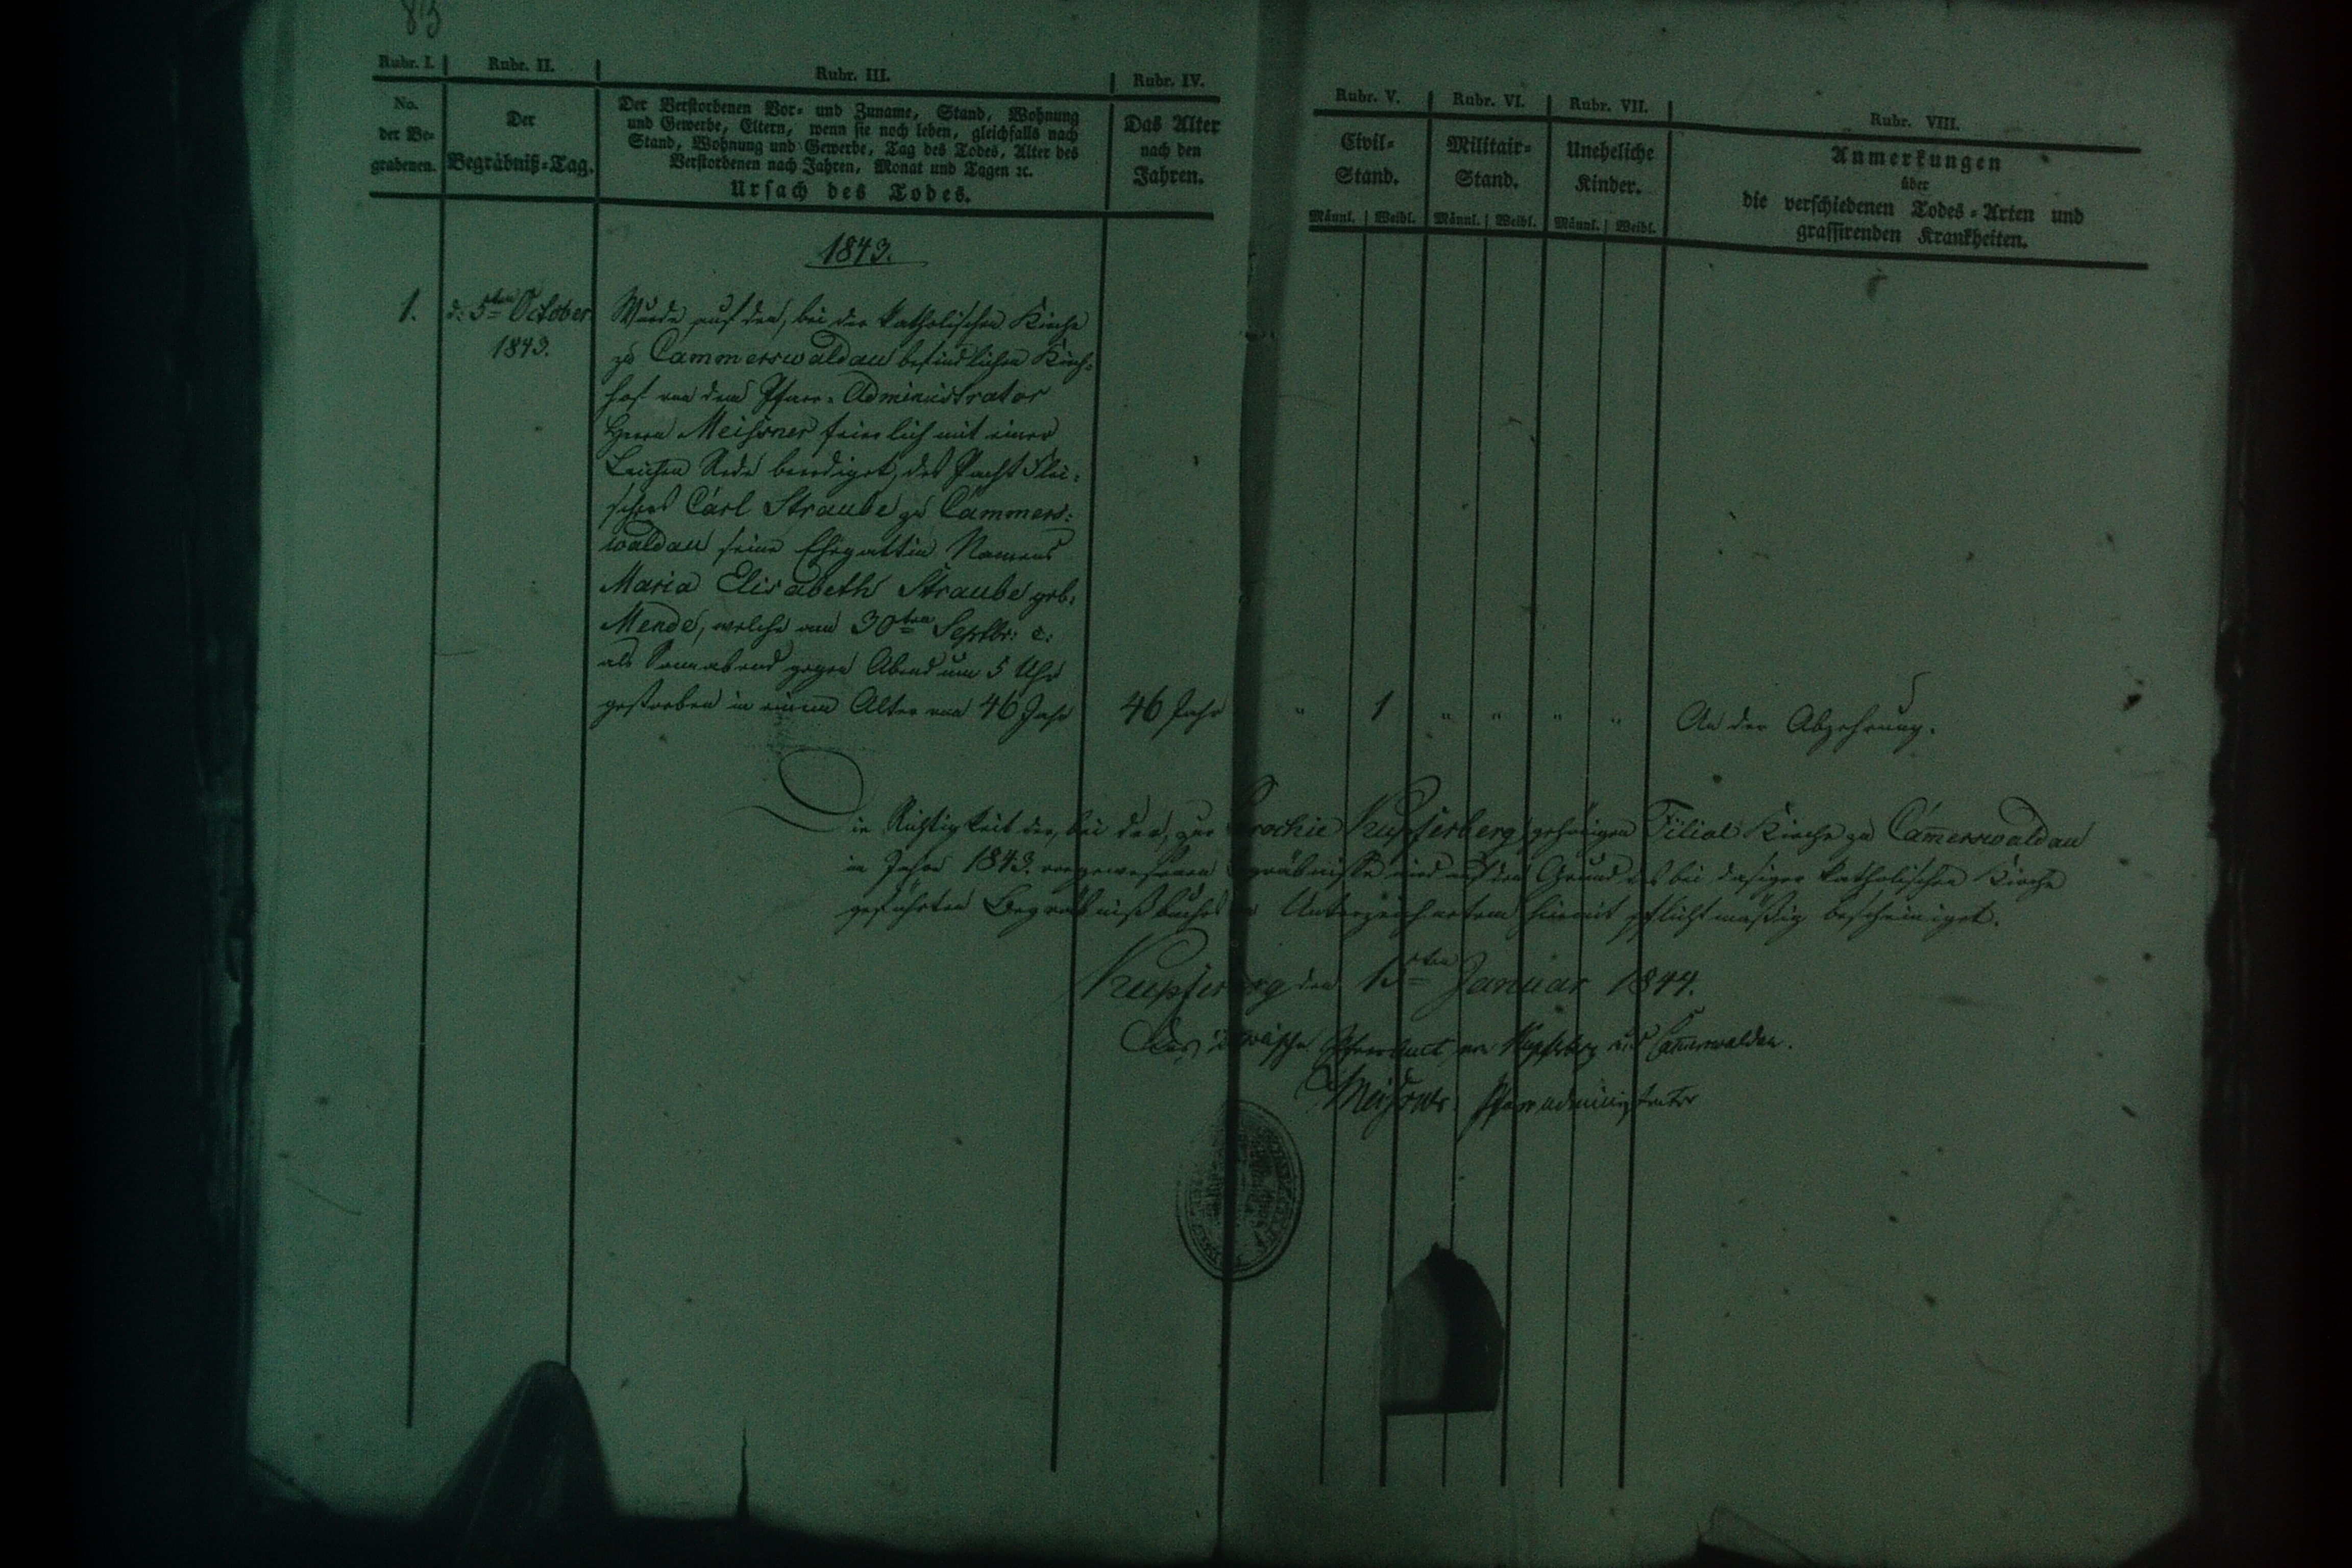 83
Rubr. I. Rubr. II. Rubr. III. Rubr. IV.
No. der Be= grabenen.
Der Begräbniß=Tag.
Der Verstorbenen Vor= und Zuname, Stand, Wohnung
und Gewerbe, Eltern, wenn sie noch leben, gleichfalls nach
Stand, Wohnung und Gewerbe, Tag des Todes, Alter des
Verstorbenen nach Jahren, Monat und Tagen ꝛc.
Ursach des Todes.
Das Alter
nach den
Jahren.
1843.
1. d. 5ten October
1843.
Wurde auf dem, bei der katholischen Kirche
zu Cammerswaldau befindlichen Kirch=
hof von dem Pfarr=Administrator
Herrn Meissner feierlich mit einer
Leichen Rede beerdiget, des Pacht Flei=
schers Carl Straube zu Cammers=
waldau seine Ehegattin Namens
Maria Elisabeth Straube geb.
Mende, welche am 30ten Septbr. c.
als Sonnabend gegen Abend um 5 Uhr
gestorben in einem Alter von 46 Jahr
46 Jahr
Rubr. V. Rubr. VI. Rubr. VII. Rubr. VIII.
Civil=
Stand.
Militair=
Stand.
Uneheliche
Kinder.
Anmerkungen
über
die verschiedenen Todes=Arten und
grassirenden Krankheiten.
Männl. Weibl. Männl. Weibl. Männl. Weibl.
" 1 " " " " An der Abzehrung.
Die Richtigkeit der, bei der, zur Parochie Kupferberg gehörigen Filial Kirche zu Cam̅erswaldau
im Jahre 1843. vorgewesenen Begräbnisse wird auf den Grund des bei dasiger katholischen Kirche
geführten Begräbnißbuches von Unterzeichnetem hiermit pflichtmäßig bescheiniget.
Kupferberg den 15ten Januar 1844.
Das Pfarramt von Kupferberg und Cam̅erswaldau.
Meissner Pfarradministrator